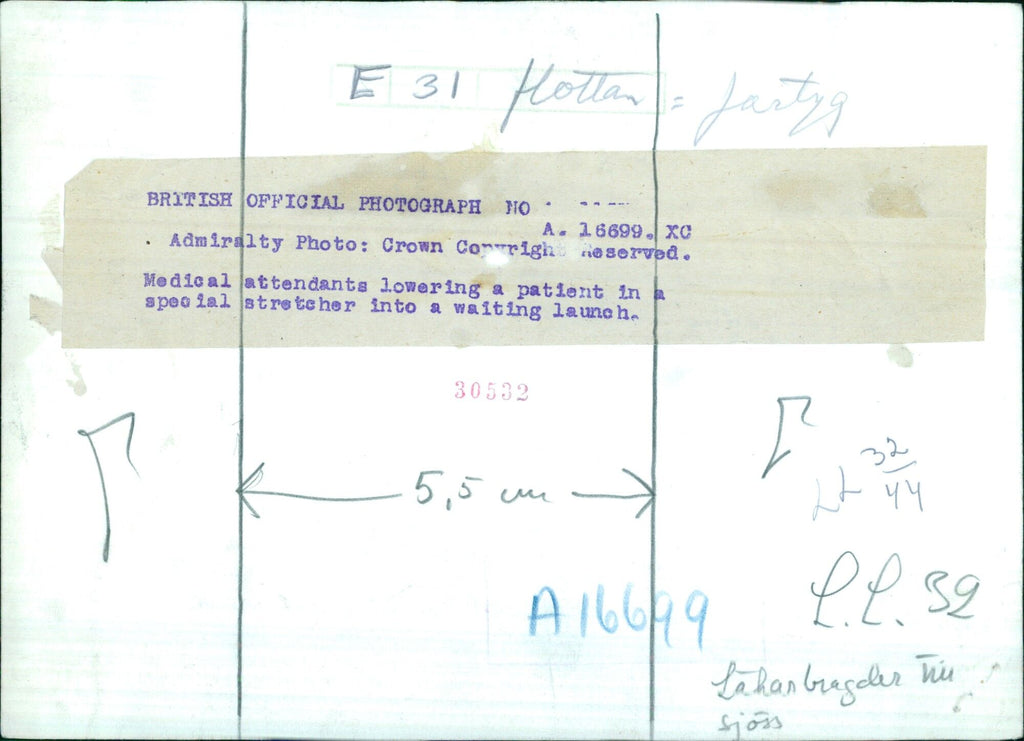 E 31 flottan = fartyg
BRITISH OFFICIAL PHOTOGRAPH NO
A. 16699. XC
Admiralty Photo: Crown Copyright Reserved.
Medical attendants lowering a patient in a
special stretcher into a waiting launch.
30532
5,5 cm
LL 32/44
A16699
L.L. 32
Läkarbragder till
sjöss